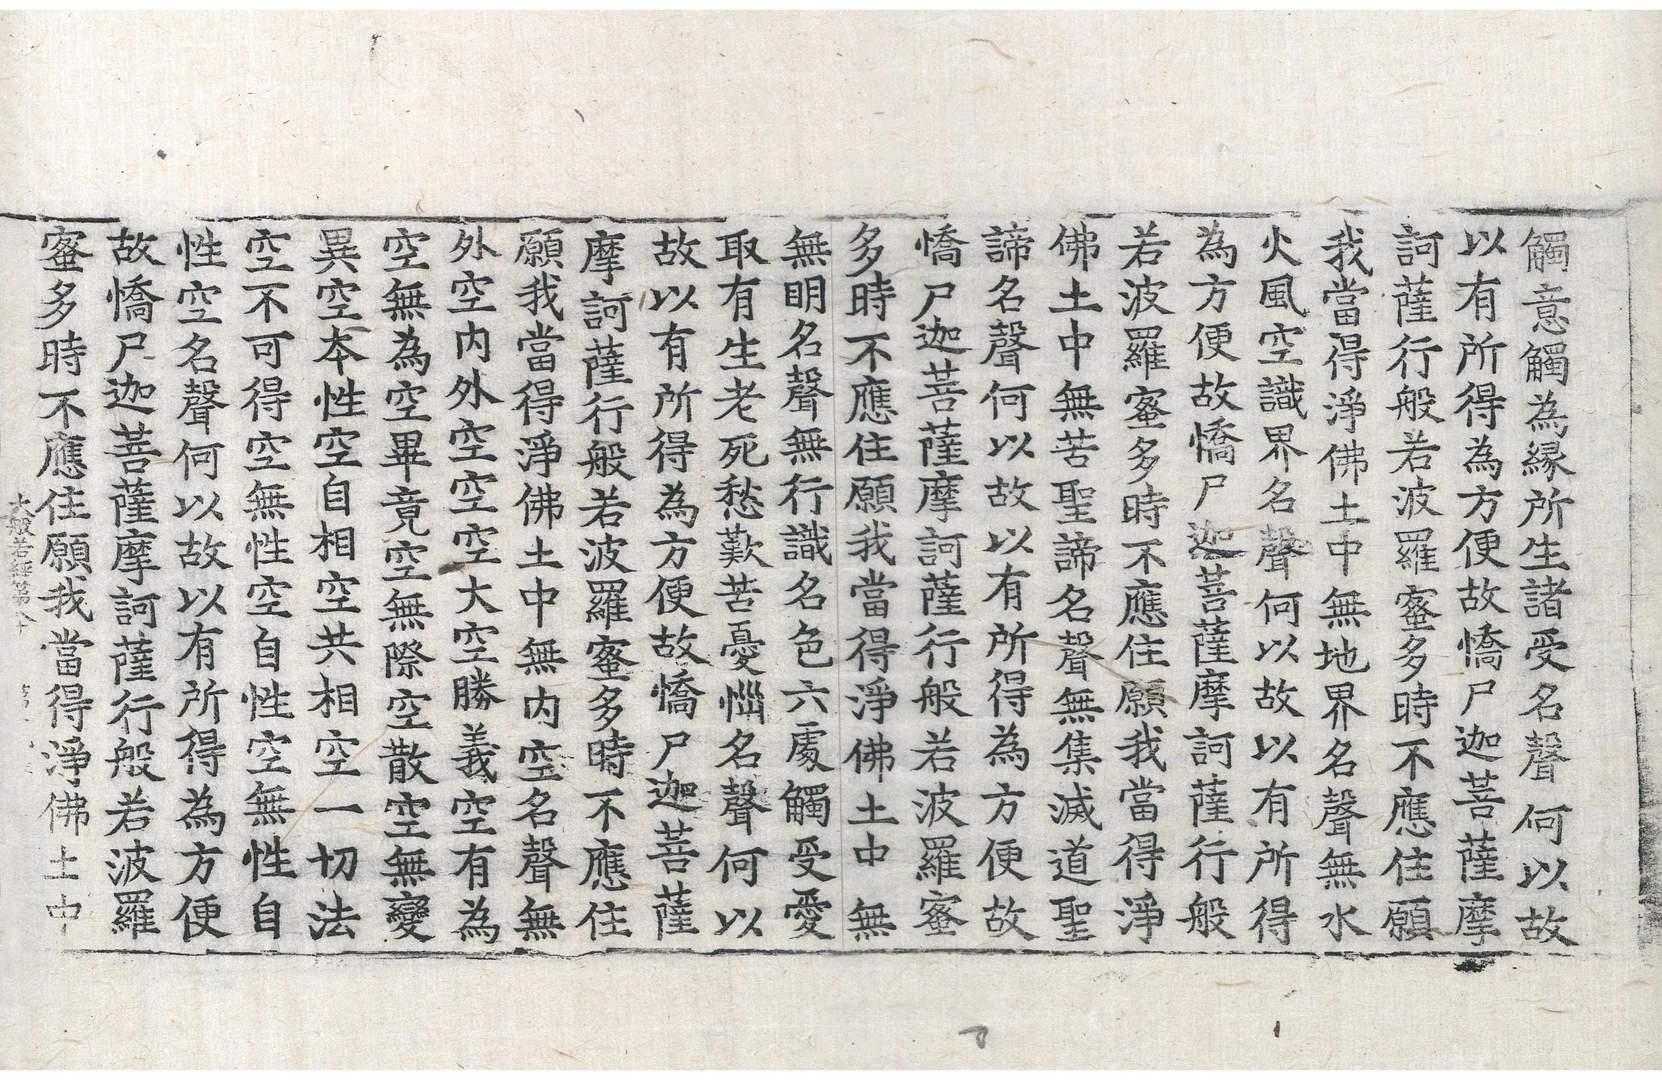 觸意觸為縁所生諸受名聲何以故
以有所得為方便故憍尸迦菩薩摩
訶薩行般若波羅蜜多時不應住願
我當得淨佛土中無地界名聲無水
火風空識界名聲何以故以有所得
為方便故憍尸迦菩薩摩訶薩行般
若波羅蜜多時不應住願我當得淨
佛土中無苦聖諦名聲無集滅道聖
諦名聲何以故以有所得為方便故
憍尸迦菩薩摩訶薩行般若波羅蜜
多時不應住願我當得淨佛土中無
無明名聲無行識名色六處觸受愛
取有生老死愁歎苦憂惱名聲何以
故以有所得為方便故憍尸迦菩薩
摩訶薩行般若波羅蜜多時不應住
願我當得淨佛土中無内空名聲無
外空内外空空空大空勝義空有為
空無為空畢竟空無際空散空無變
異空本性空自相空共相空一切法
空不可得空無性空自性空無性自
性空名聲何以故以有所得為方便
故憍尸迦菩薩摩訶薩行般若波羅
蜜多時不應住願我當得淨佛土中
大般若經第